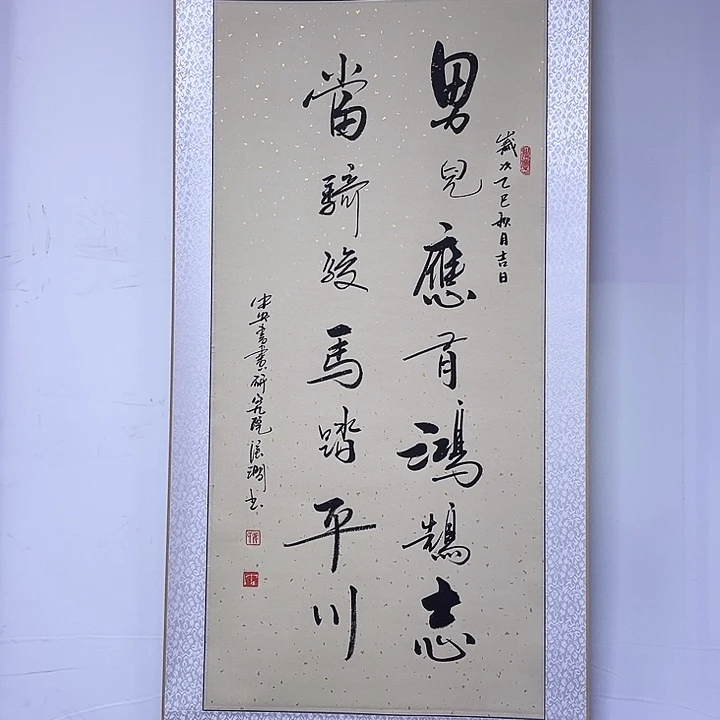 歲次乙巳秋月吉日
男兒應有鴻鵠志
當騎駿馬踏平川
書畫研究院